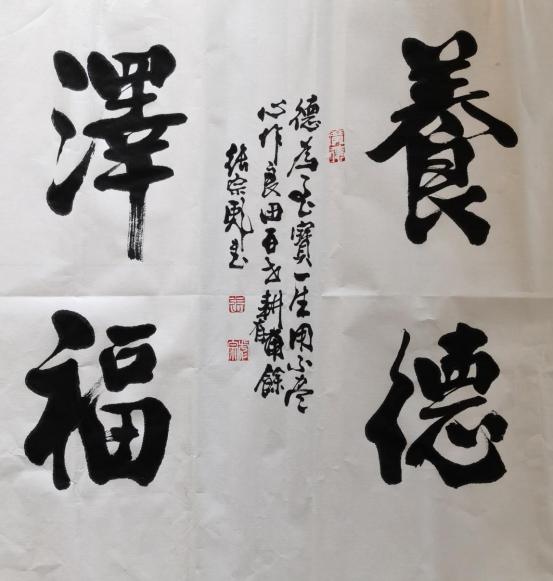 養德
德為至寶一生用不盡
心作良田百世耕有餘
張宗書
澤福